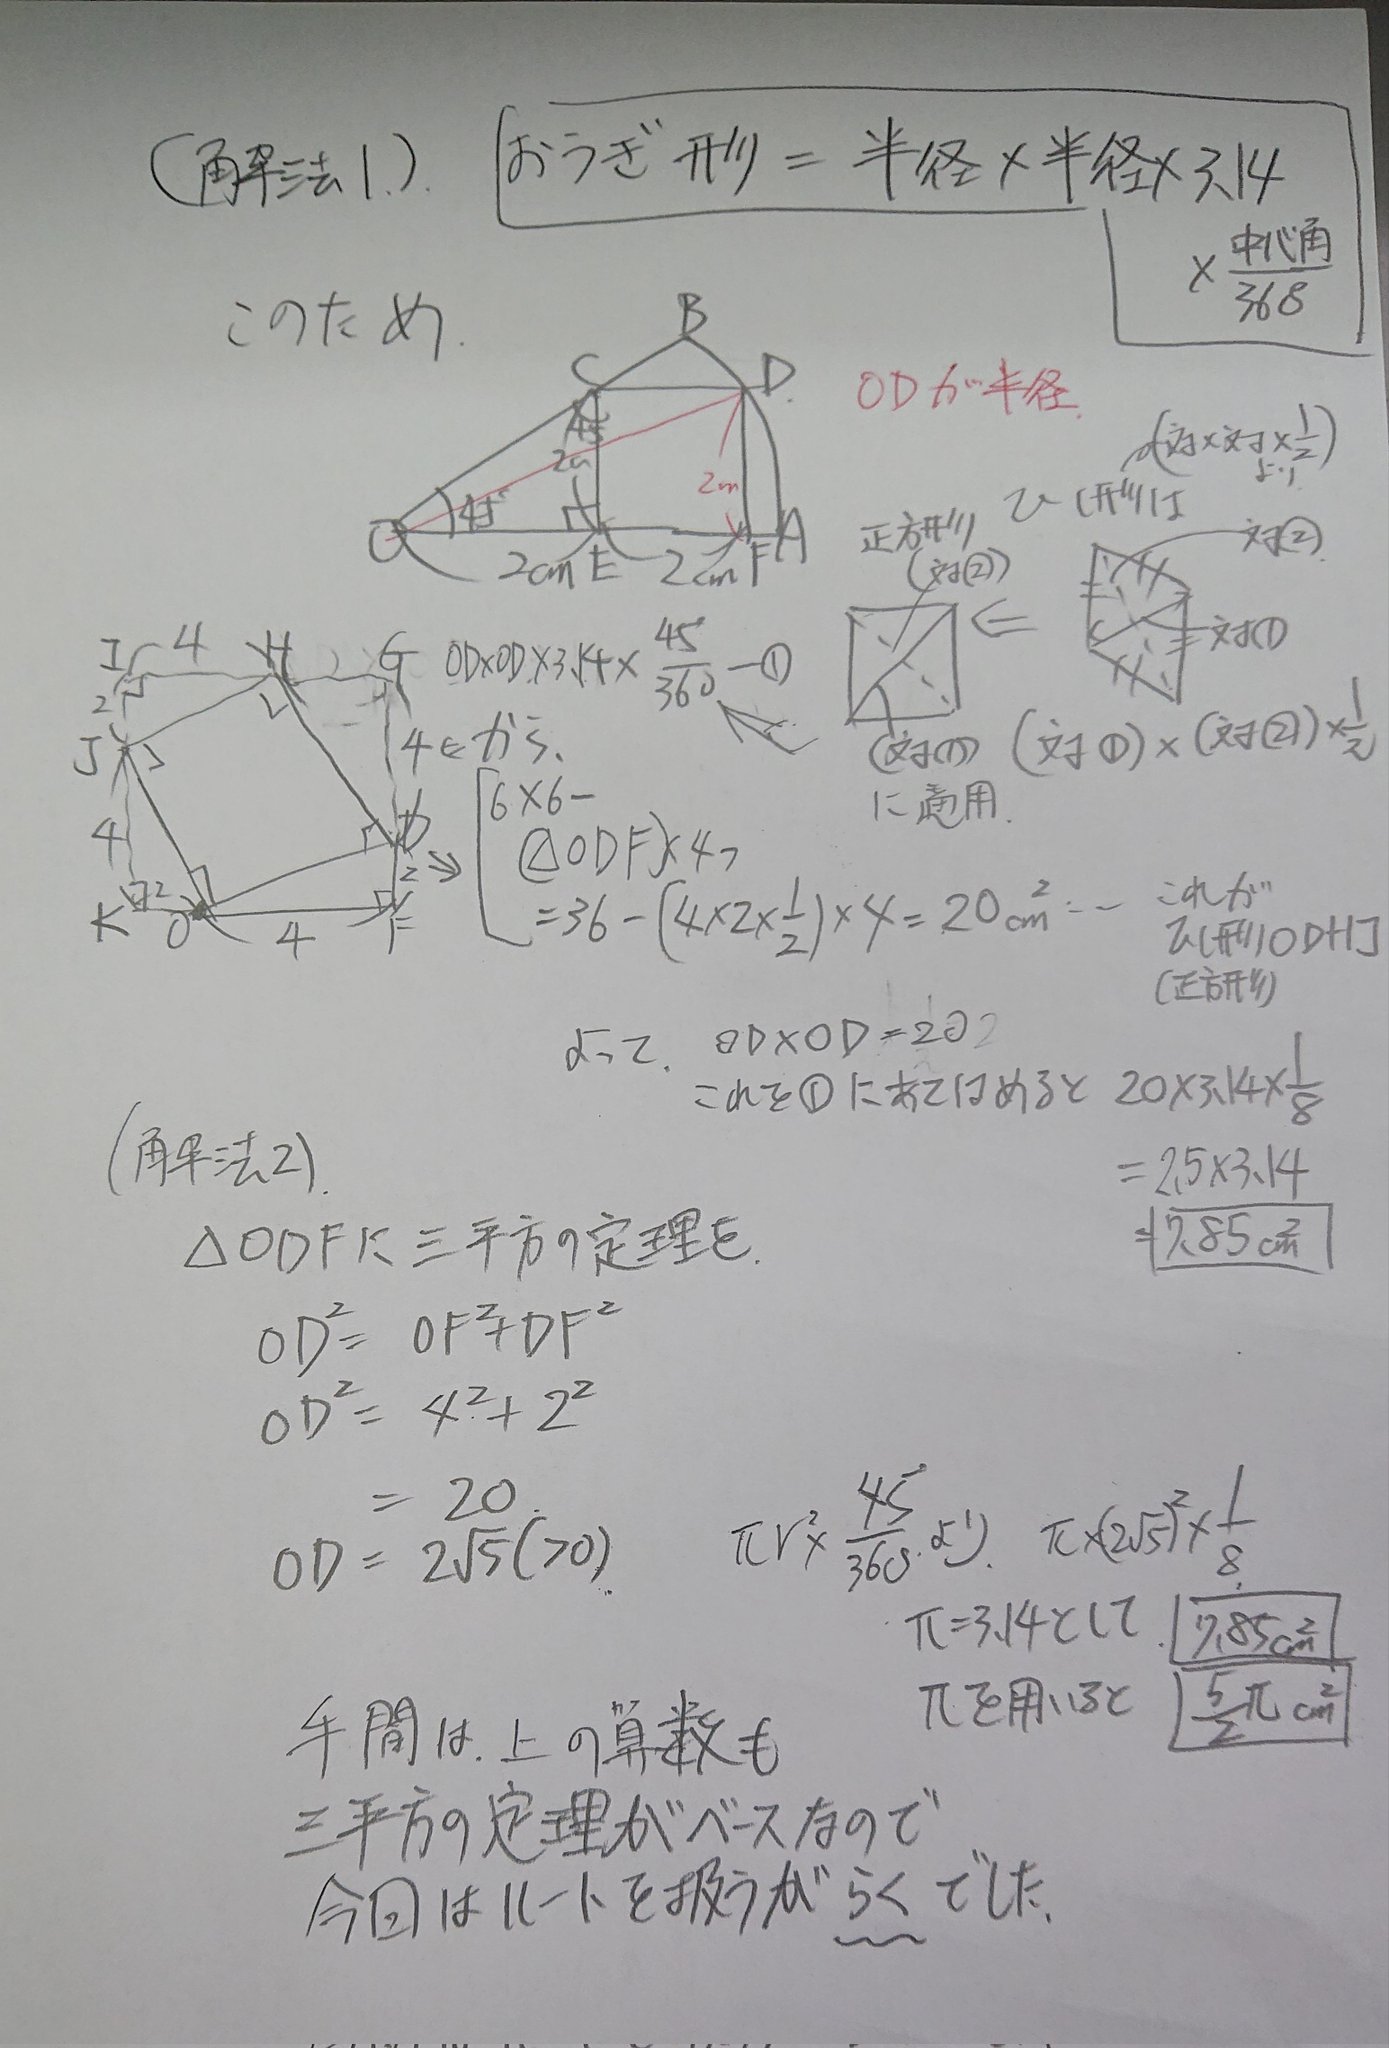 (解法1.)
おうぎ形 = 半径×半径×3.14
× 中心角/368
このため.
B
C
D
ODが半径.
45
2cm
2cm
45°
O
2cm
E
2cm
F
A
(対×対×1/2)
より
ひし形は
正方形
(対②)
対②
対①
(対①)
に適用.
(対①)×(対②)×1/2
I
4
H
2
G
2
J
4
4
D
2
K
2
O
4
F
OD×OD×3.14×45°/360 ー①
から、
6×6−
(△ODF)×4
=36−(4×2×1/2)×4=20cm² … これが
ひし形ODHJ
(正方形)
よって、OD×OD=20
これを①にあてはめると 20×3.14×1/8
=2.5×3.14
=7.85cm²
(解法2).
△ODFに三平方の定理を.
OD²= OF²+DF²
OD²= 4²+2²
= 20.
OD = 2√5(>0)
πr²×45/360より. π×(2√5)²×1/8
π=3.14として 7.85cm²
πを用いると 5/2π cm²
手間は、上の算数も
三平方の定理がベースなので
今回はルートを扱うがらくでした.